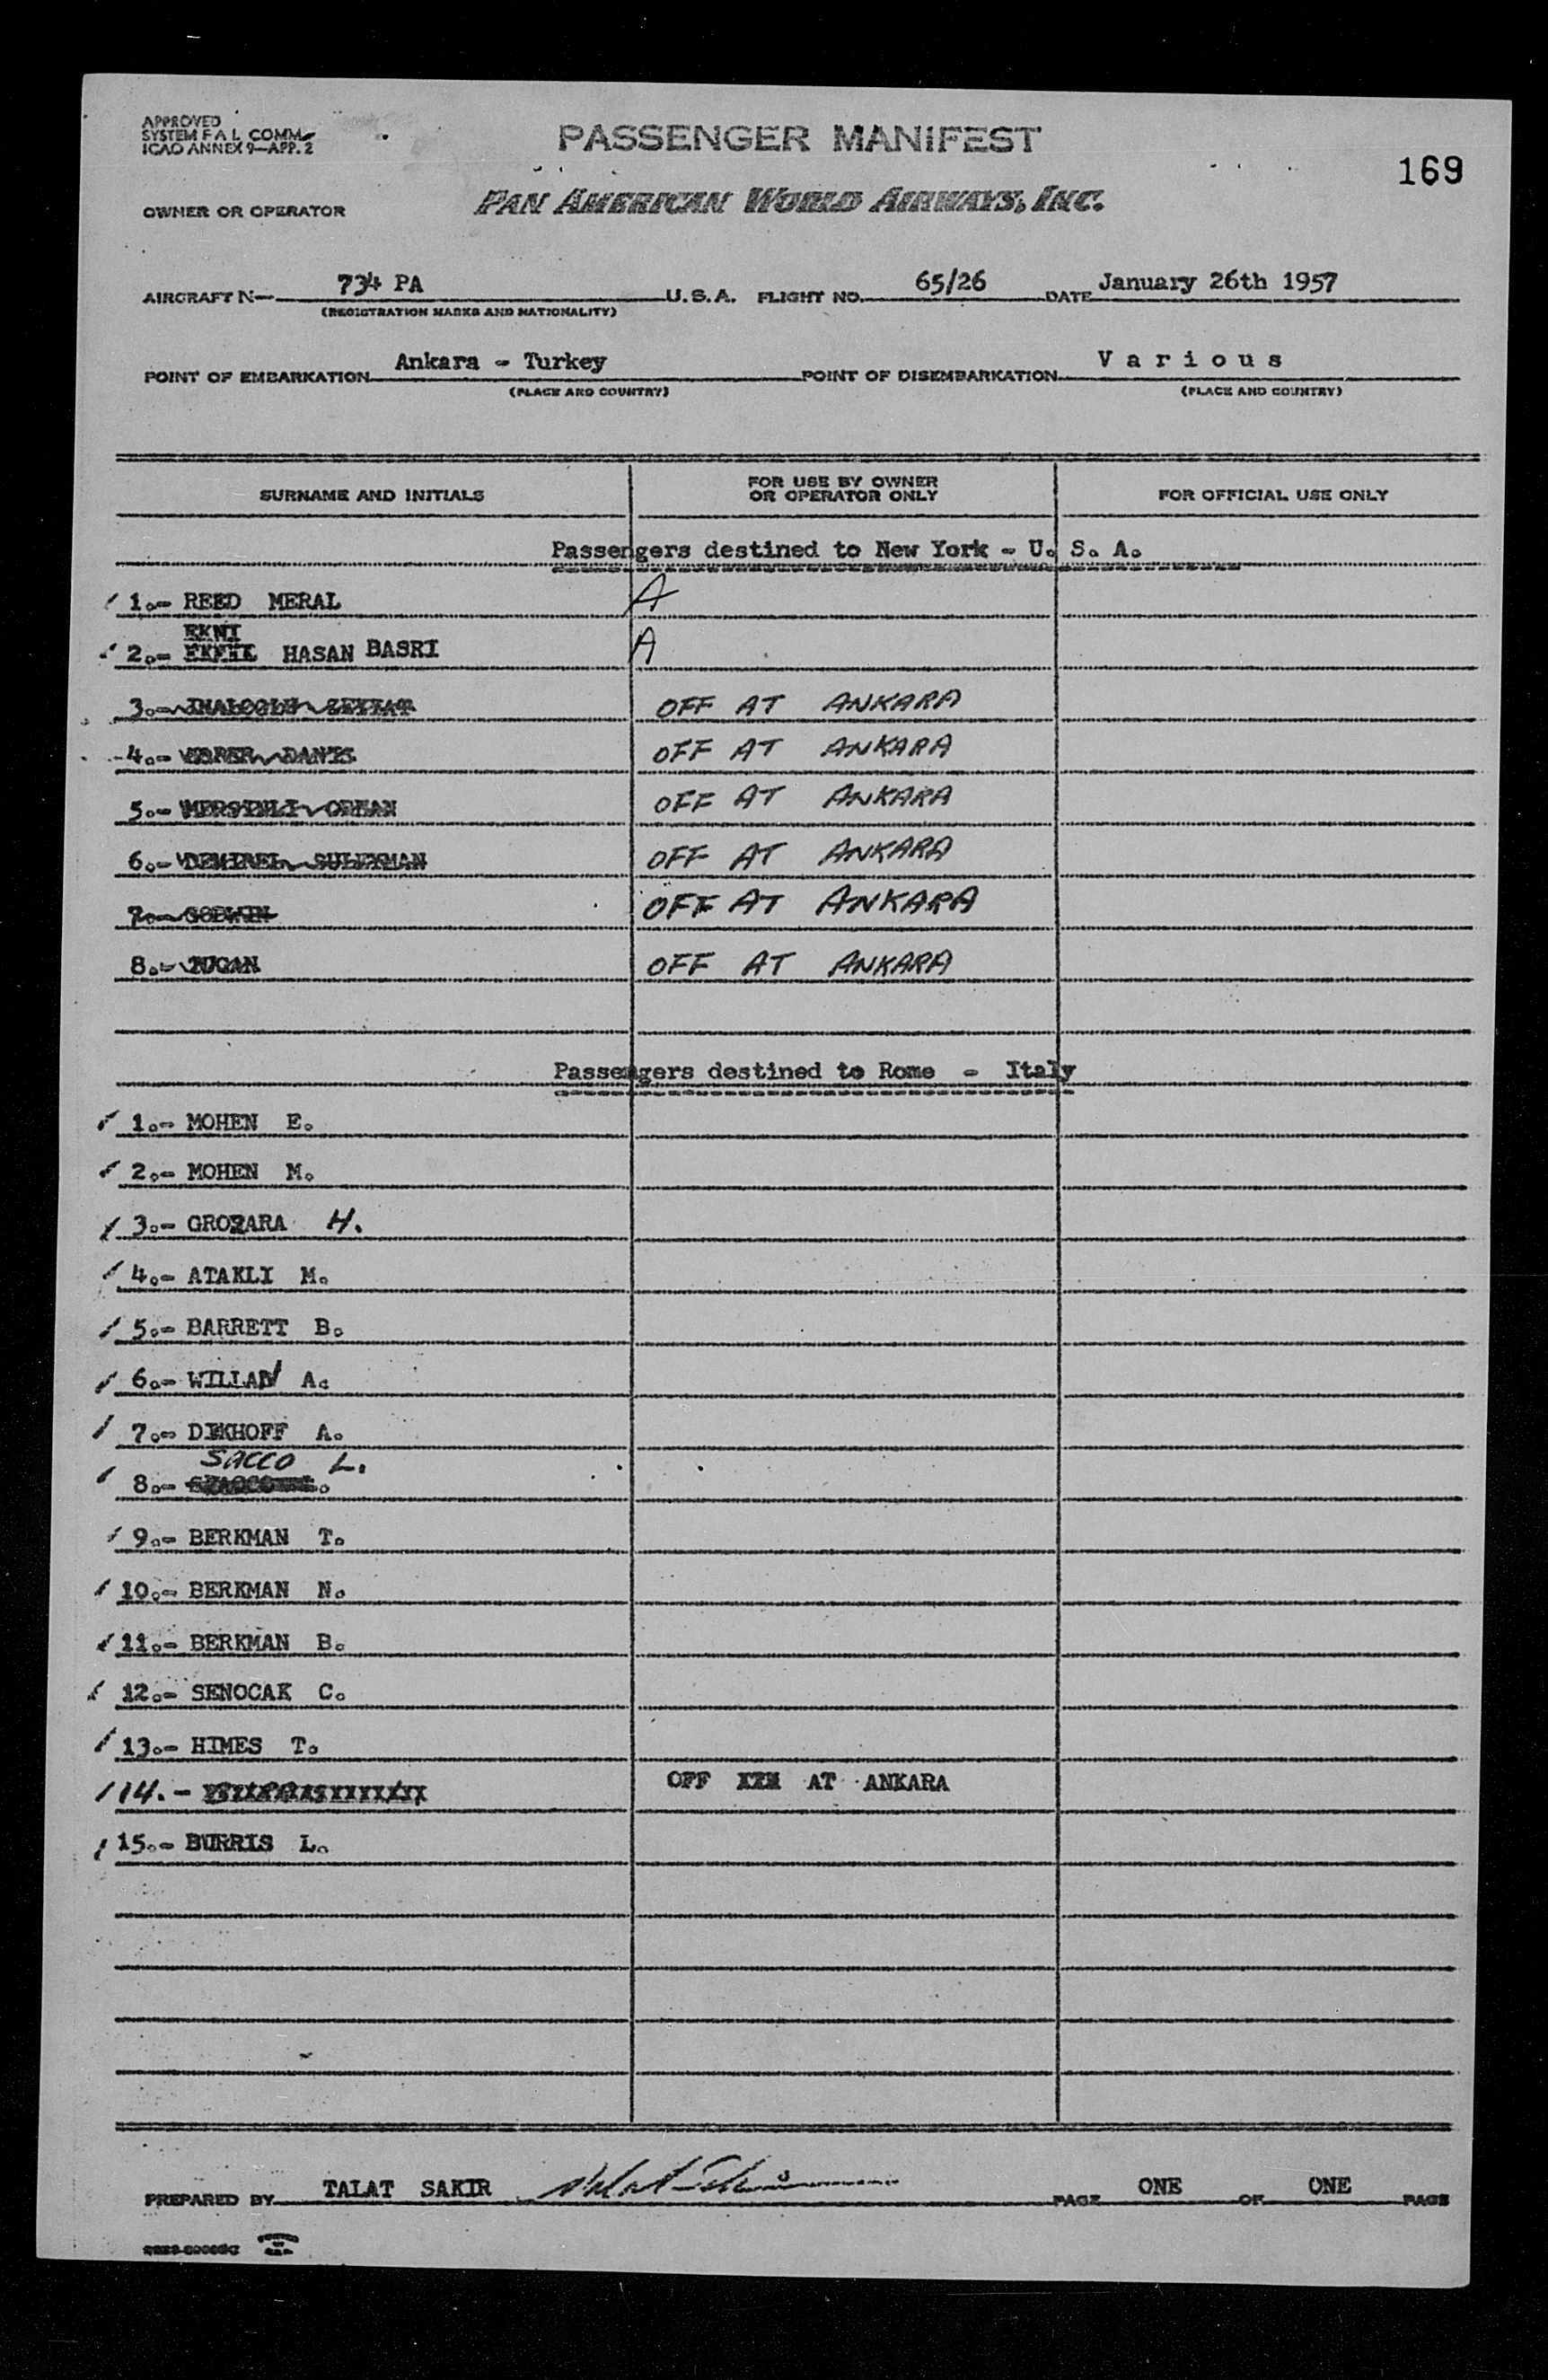 APPROVED
SYSTEM F A L COMM.
ICAO ANNEX 9—APP. 2
PASSENGER MANIFEST
169
OWNER OR OPERATOR PAN AMERICAN WORLD AIRWAYS, INC.
AIRCRAFT N— 734 PA U.S.A. FLIGHT NO. 65/26 DATE January 26th 1957
(REGISTRATION MARKS AND NATIONALITY)
POINT OF EMBARKATION Ankara - Turkey POINT OF DISEMBARKATION Various
(PLACE AND COUNTRY) (PLACE AND COUNTRY)
SURNAME AND INITIALS FOR USE BY OWNER OR OPERATOR ONLY FOR OFFICIAL USE ONLY
Passengers destined to New York - U. S. A.
1.- REED MERAL A
EKNI
2.- HASAN BASRI A
3.- OFF AT ANKARA
4.- OFF AT ANKARA
5.- MERSINLI ORHAN OFF AT ANKARA
6.- DEMIREL SULEYMAN OFF AT ANKARA
7.- GODWIN OFF AT ANKARA
8.- OFF AT ANKARA
Passengers destined to Rome - Italy
1.- MOHEN E.
2.- MOHEN M.
3.- H.
4.- ATAKLI M.
5.- BARRETT B.
6.- WILLAN A.
7.- DIKHOFF A.
SACCO L.
8.-
9.- BERKMAN T.
10.- BERKMAN N.
11.- BERKMAN B.
12.- SENOCAK C.
13.- HIMES T.
14.- OFF AT ANKARA
15.- BURRIS L.
PREPARED BY TALAT SAKIR PAGE ONE OF ONE PAGE